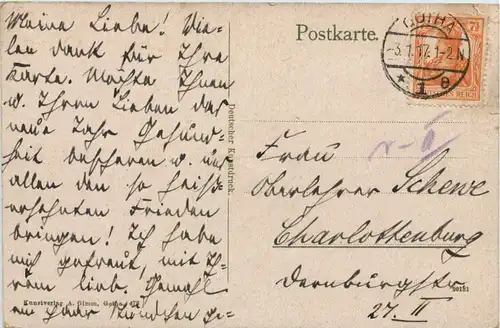 Meine Liebe! Vie-
len Dank für Ihre
Karte. Möchte Ihnen
u. Ihren Lieben das
neue Jahr Gesund-
heit bescheren u. uns
allen den so heiß-
ersehnten Frieden
bringen! Ich habe
mich gefreut, mit Ih-
rem lieb. Gemahl
ein paar Stündchen ge-
Kunstverlag A. Simon, Gotha
Deutscher Kunstdruck.
Postkarte.
GOTHA
-3.1.17.1-2N
* 1 e
7½
REICH
Frau
Oberlehrer Schewe
Charlottenburg
Dernburgstr.
27. II